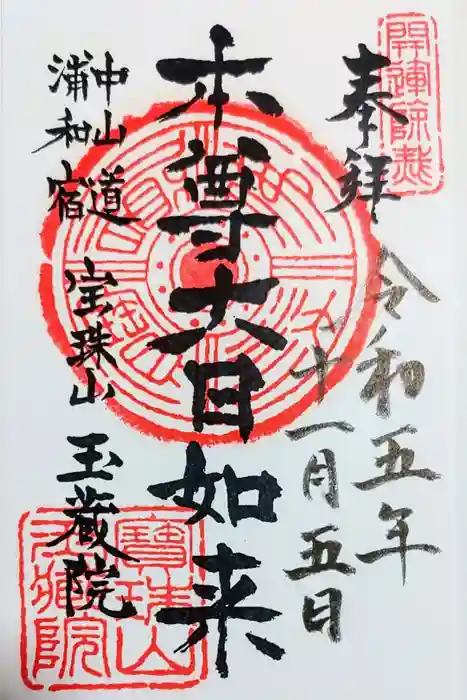 開運除災
奉拝
令和五年
十一月五日
本尊大日如来
中山道
浦和宿
宝珠山
玉蔵院
寳珠山
玉蔵院